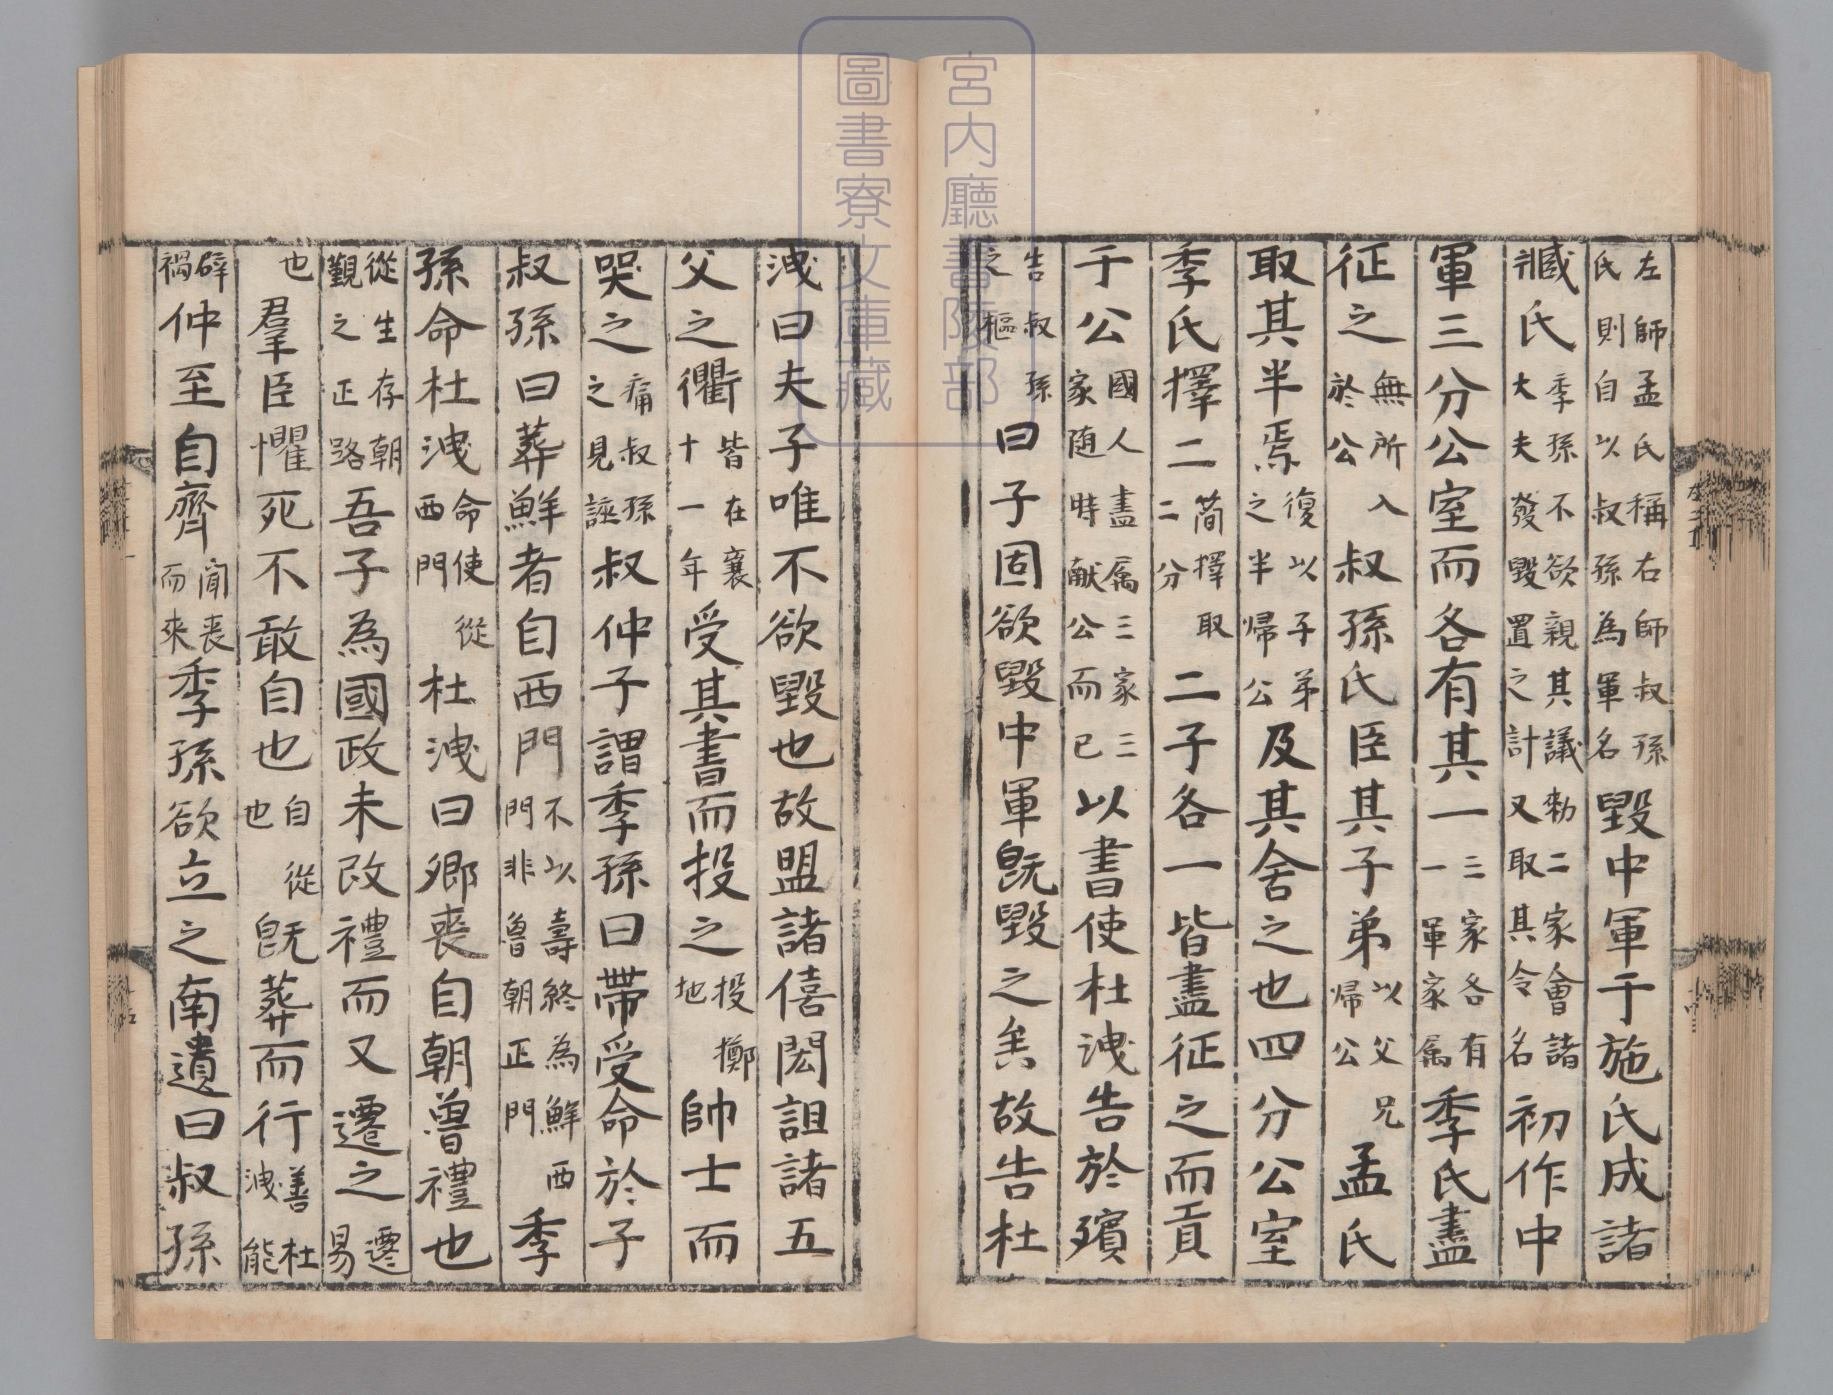 左師孟氏稱右師叔孫氏則自以叔孫為軍名毀中軍于施氏成諸
臧氏季孫不欲親其議勑二家會諸大夫發毀置之計又取其令名初作中
軍三分公室而各有其一三家各有一軍家属季氏盡
征之無所入於公叔孫氏臣其子弟以父兄歸公孟氏
取其半焉復以子弟之半歸公及其舍之也四分公室
季氏擇二简擇取二分二子各一皆盡征之而貢
于公國人盡属三家三家随時献公而已以書使杜洩告於殯
告叔孫之柩曰子固欲毀中軍既毀之矣故告杜
洩曰夫子唯不欲毀也故盟諸僖閎詛諸五
父之衢皆在襄十一年受其書而投之投擲地帥士而
哭之痛叔孫之見誣叔仲子謂季孫曰帶受命於子
叔孫曰葬鮮者自西門不以壽終為鮮西門非魯朝正門季
孫命杜洩命使從西門杜洩曰卿喪自朝魯禮也
從生存朝覲之正路吾子為國政未改禮而又遷之遷易
也羣臣懼死不敢自也自從也既葬而行善杜洩能
辟禍仲至自齊聞喪而來季孫欲立之南遺曰叔孫
宮内廳書陵部
圖書寮文庫藏